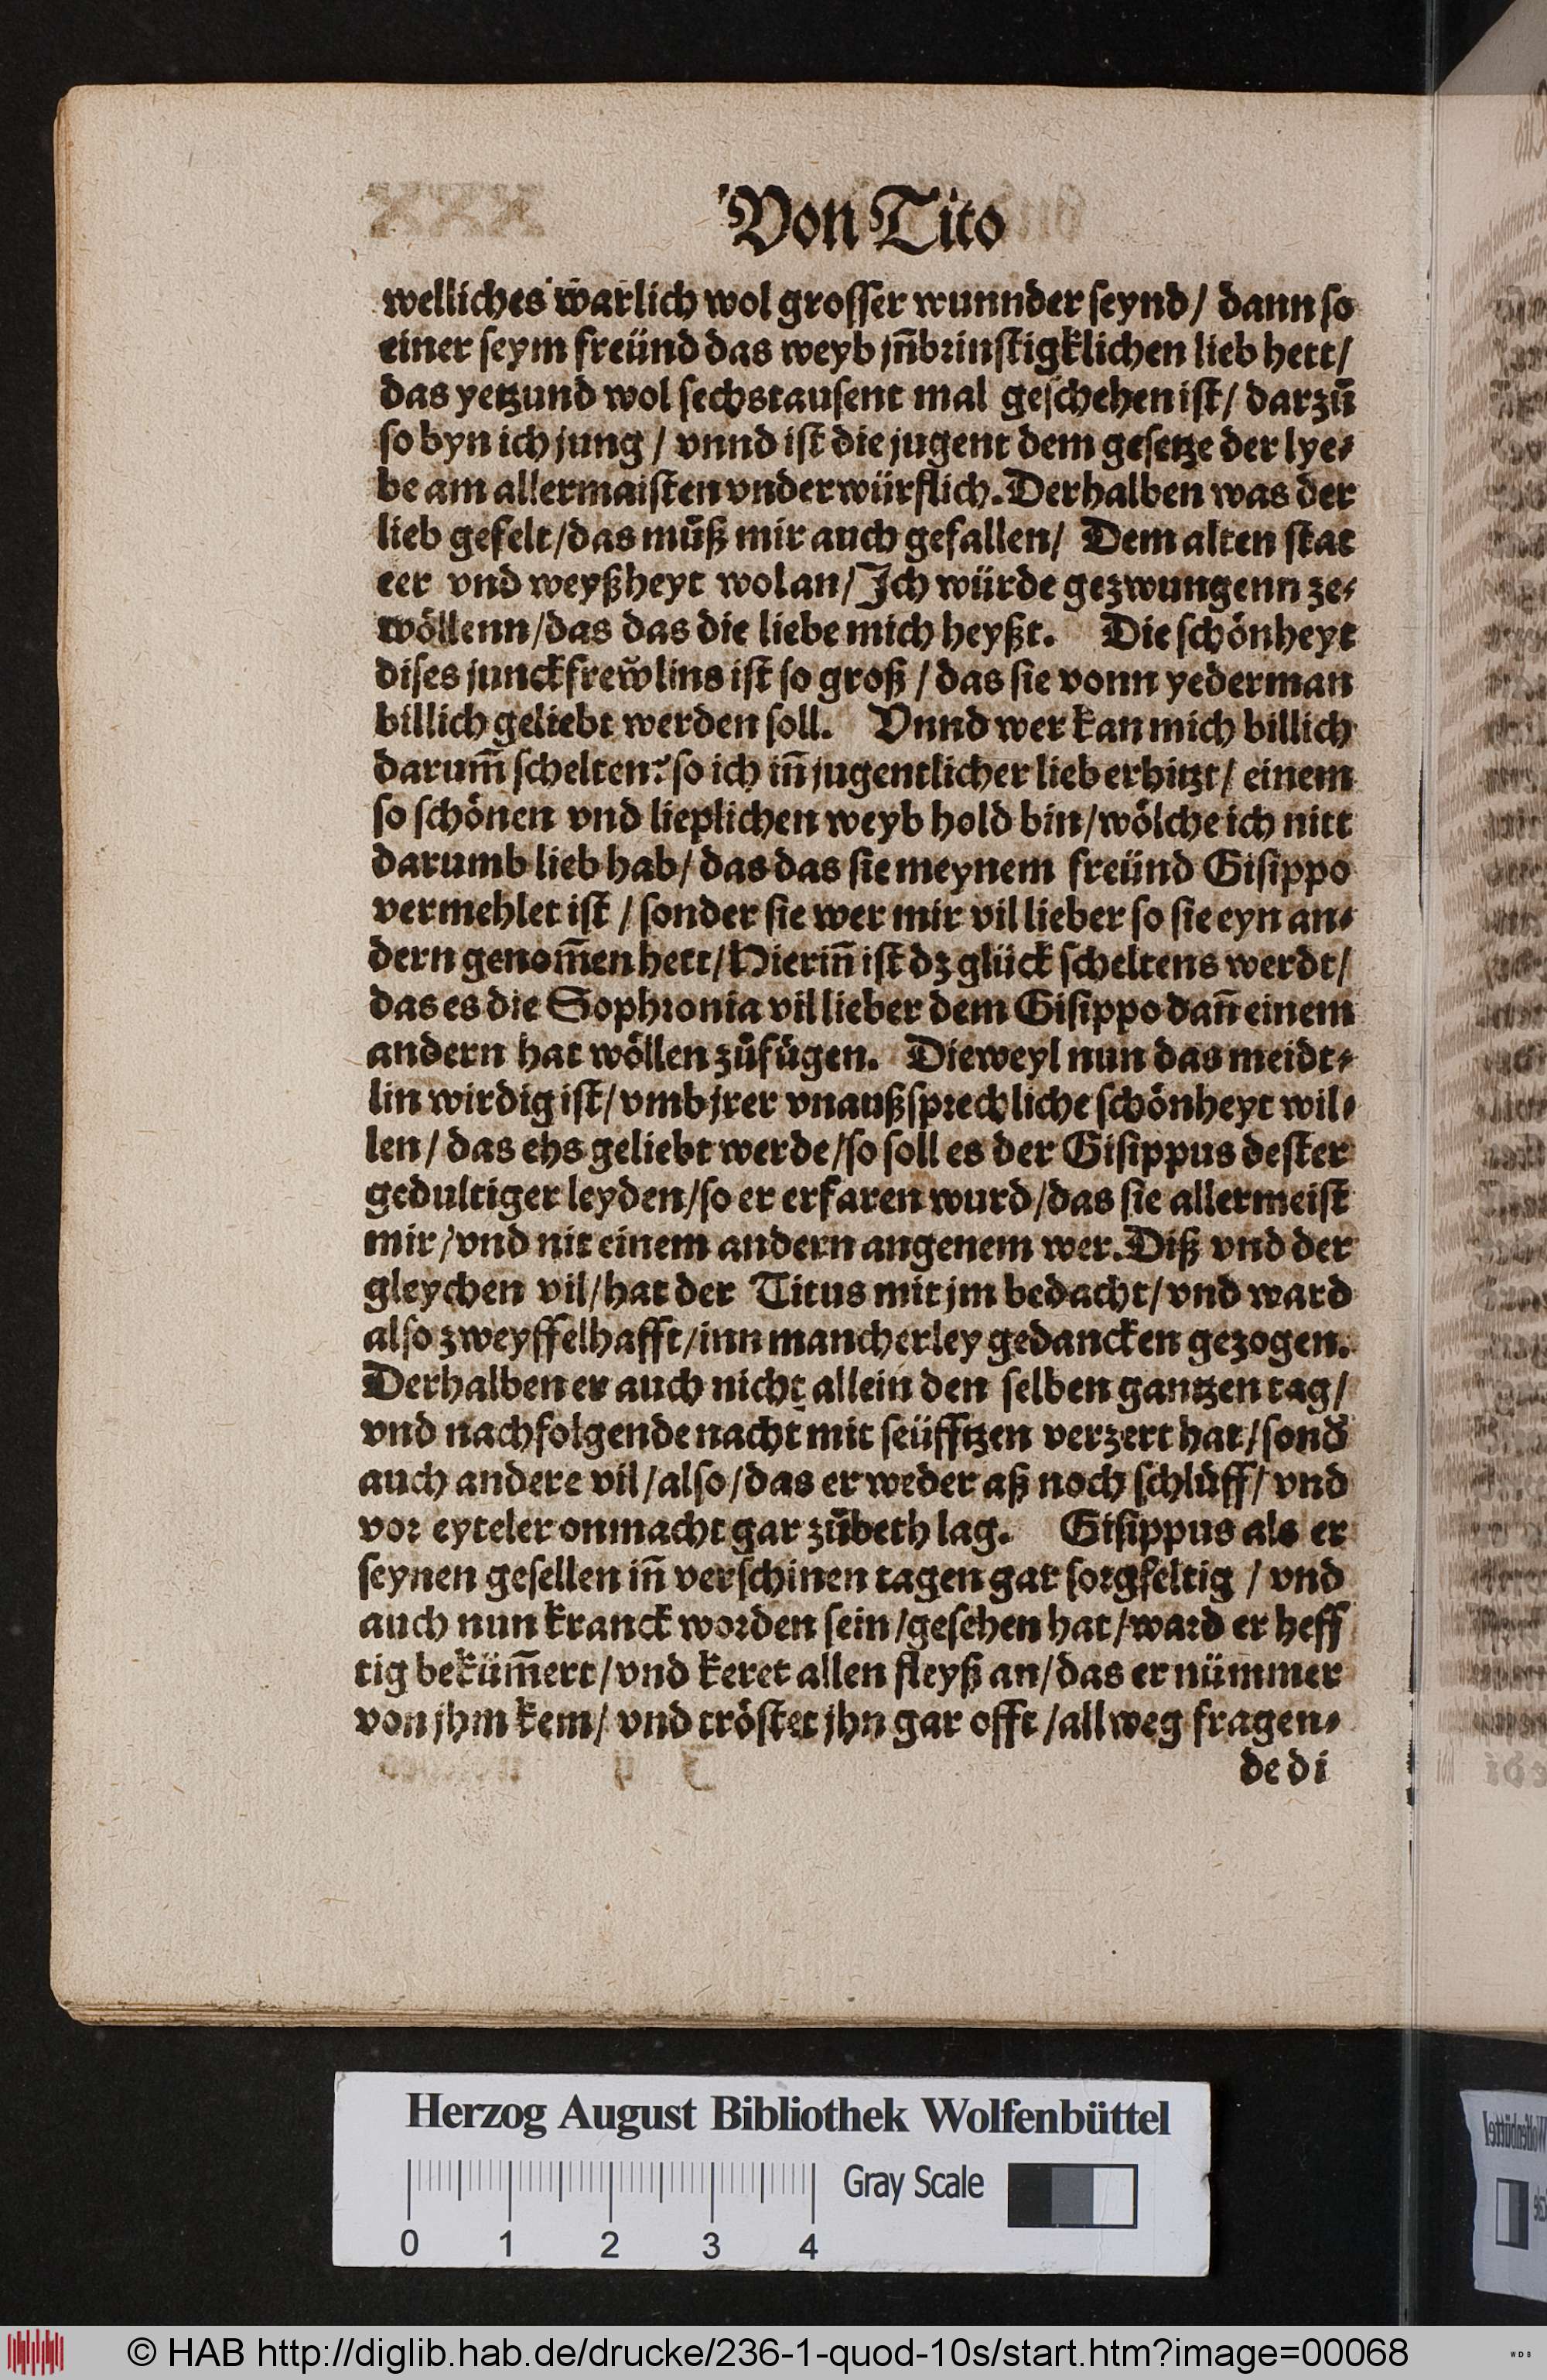 Von Tito
welliches warlich wol grosser wunnder seynd / dann so
einer seym freünd das weyb jn̄brinstigklichen lieb hett /
das yetzund wol sechstausent mal geschehen ist / darzů
so byn ich jung / vnnd ist die jugent dem gesetze der lye⸗
be am allermaisten vnderwürflich. Derhalben was der
lieb gefelt / das můß mir auch gefallen / Dem alten stat
eer vnd weyßheyt wol an / Ich würde gezwungenn ze⸗
wöllenn / das das die liebe mich heyßt. Die schönheyt
dises junckfrewlins ist so groß / das sie vonn yederman
billich geliebt werden soll. Vnnd wer kan mich billich
darum̄ schelten? so ich in̄ jugentlicher lieb erhitzt / einem
so schönen vnd lieplichen weyb hold bin / wölche ich nitt
darumb lieb hab / das das sie meynem freünd Gisippo
vermehlet ist / sonder sie wer mir vil lieber so sie eyn an⸗
dern genom̄en hett / Hierin̄ ist dz glück scheltens werdt /
das es die Sophronia vil lieber dem Gisippo dan̄ einem
andern hat wöllen zůfügen. Dieweyl nun das meidt⸗
lin wirdig ist / vmb jrer vnaußsprechliche schönheyt wil⸗
len / das ehs geliebt werde / so soll es der Gisippus dester
gedultiger leyden / so er erfaren wurd / das sie allermeist
mir / vnd nit einem andern angenem wer. Diß vnd der
gleychen vil / hat der Titus mit jm bedacht / vnd ward
also zweyffelhafft / inn mancherley gedancken gezogen.
Derhalben er auch nicht allein den selben gantzen tag /
vnd nachfolgende nacht mit seüfftzen verzert hat / sond̓
auch andere vil / also / das er weder aß noch schlůff / vnd
vor eyteler onmacht gar zůbeth lag. Gisippus als er
seynen gesellen in̄ verschinen tagen gar sorgfeltig / vnd
auch nun kranck worden sein / gesehen hat / ward er heff
tig beküm̄ert / vnd keret allen fleyß an / das er nümmer
von jhm kem / vnd tröstet jhn gar offt / allweg fragen⸗
de di
Herzog August Bibliothek Wolfenbüttel
Gray Scale
0 1 2 3 4
© HAB http://diglib.hab.de/drucke/236-1-quod-10s/start.htm?image=00068